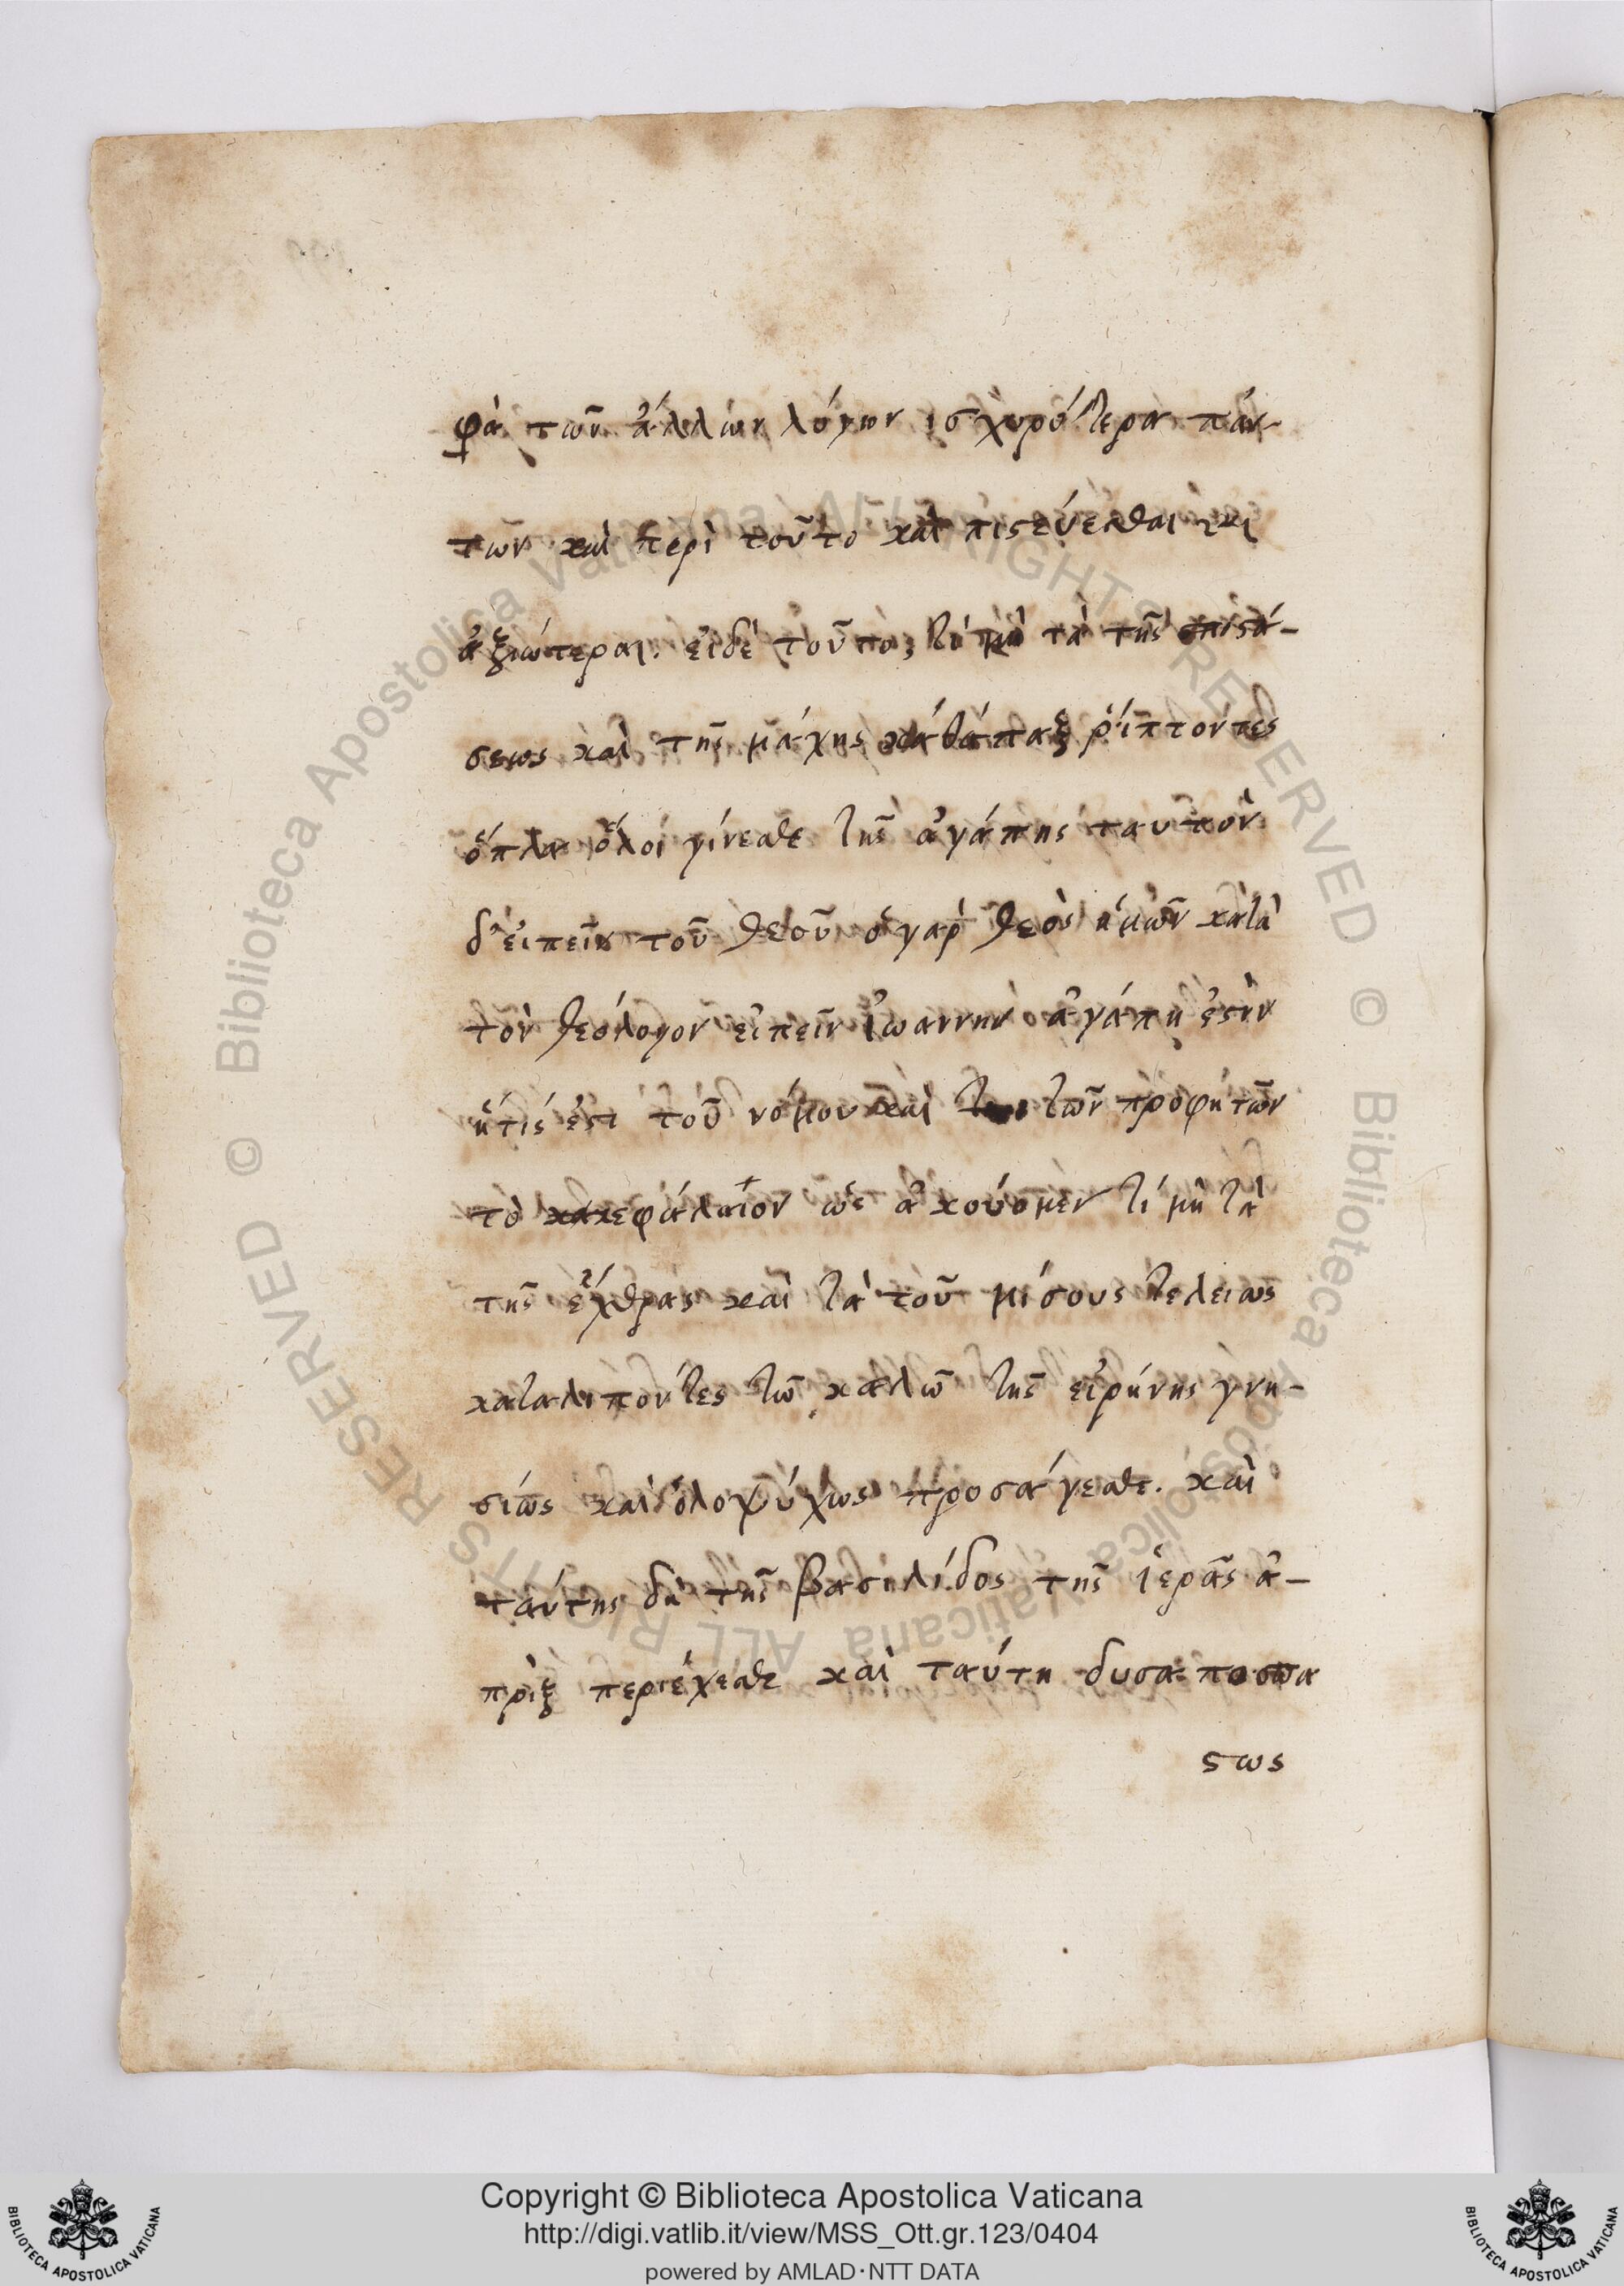 φὰ τῶν ἄλλων λόγων ἰσχυρότερα πάν-
των καὶ περὶ τοῦτο καὶ πιστεύεσθαι
ἀξιώτεραι. εἰδὲ τοῦτο, τί μὴ τὰ τῆς ἐπιστά-
σεως καὶ τῆς μάχης καθάπαξ ῥίπτοντες
ὅπλα ὅλοι γίνεσθε τῆς ἀγάπης ταυτὸν
δ' εἰπεῖν τοῦ θεοῦ ὁ γὰρ θεὸς ἡμῶν κατὰ
τὸν θεόλογον εἰπεῖν ἰωαννην ἀγάπη ἐστὶν
ἥτίς ἐστι τοῦ νόμου καὶ τῶν προφητῶν
τὸ κεφάλαιον ὡς ἀκούομεν τί μὴ τὰ
τῆς ἔχθρας καὶ τὰ τοῦ μίσους τελείως
καταλιπόντες τῶ καλῶ τῆς εἰρήνης γνη-
σίως καὶ ὁλοψύχως προσάγεσθε. καὶ
ταύτης δὴ τῆς βασιλίδος τῆς ἱερᾶς ἀ-
πρὶξ περιέχεσθε καὶ ταύτη δυσαποσπα
στως
Copyright © Biblioteca Apostolica Vaticana
http://digi.vatlib.it/view/MSS_Ott.gr.123/0404
powered by AMLAD·NTT DATA